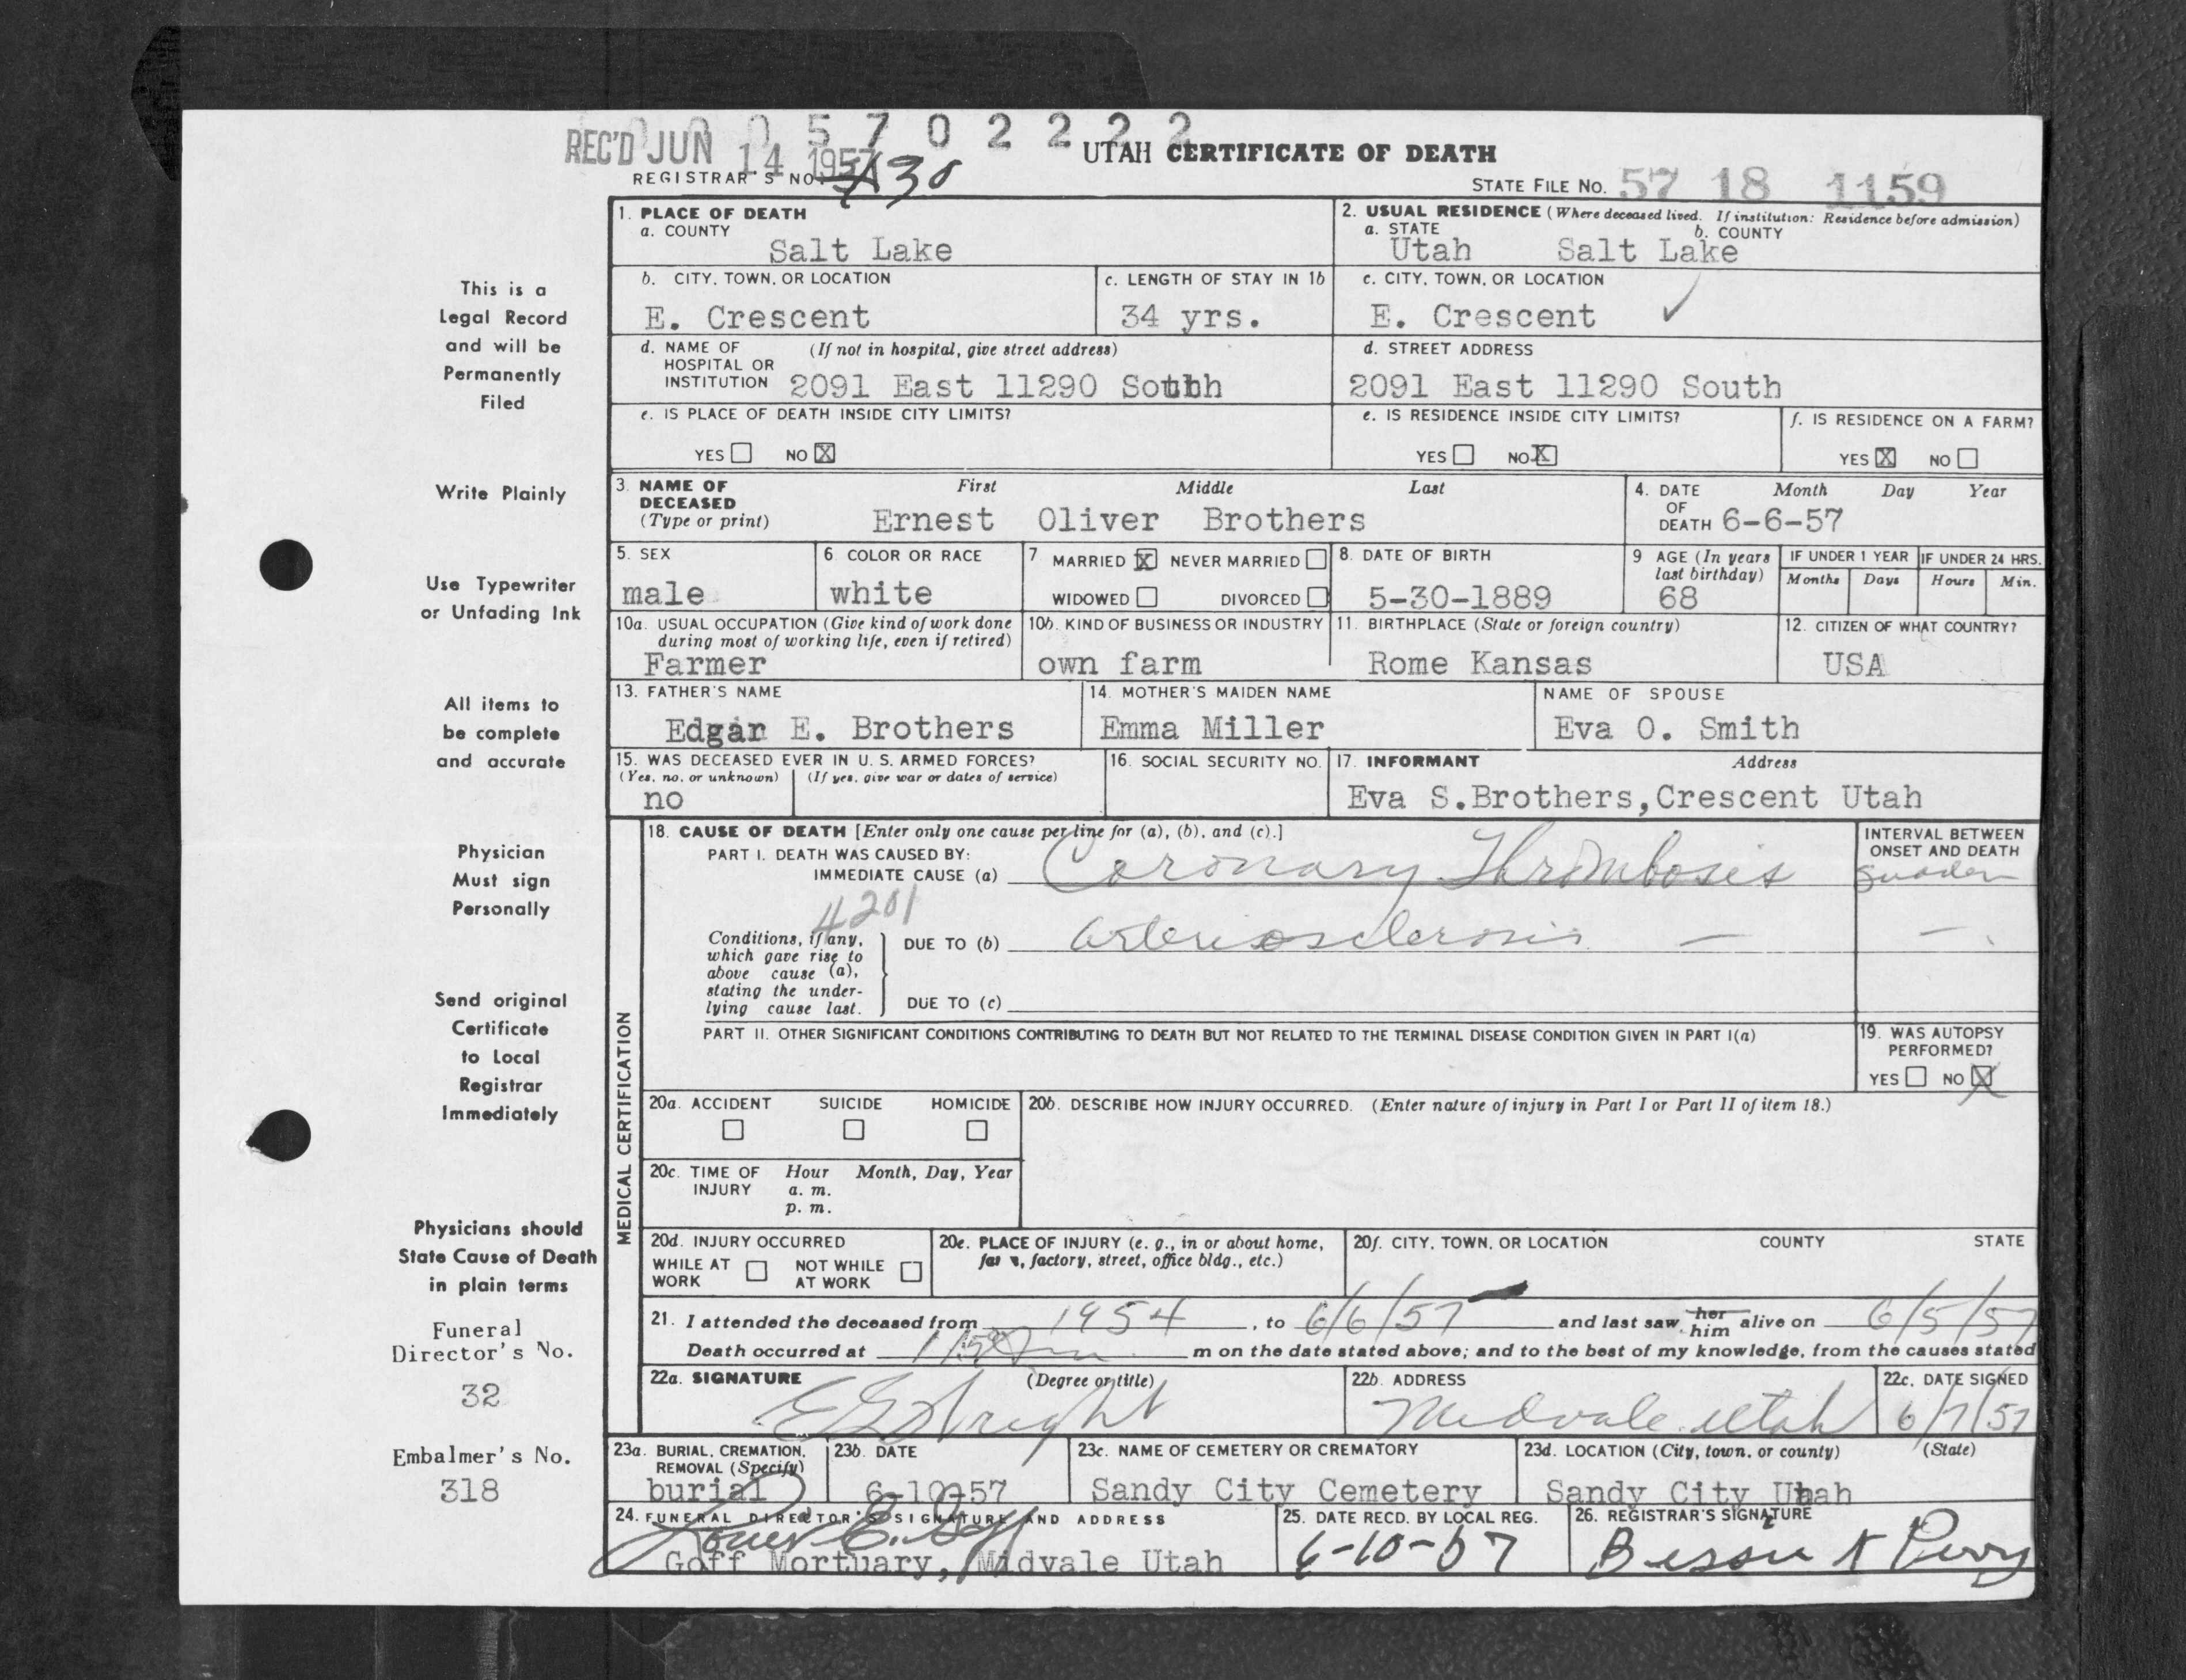 0 0 0 5 7 0 2 2 2 2
REC'D JUN 14 1957
UTAH CERTIFICATE OF DEATH
REGISTRAR'S NO. 430
STATE FILE NO. 57 18 1159
This is a
Legal Record
and will be
Permanently
Filed
Write Plainly
Use Typewriter
or Unfading Ink
All items to
be complete
and accurate
Physician
Must sign
Personally
Send original
Certificate
to Local
Registrar
Immediately
Physicians should
State Cause of Death
in plain terms
Funeral
Director's No.
32
Embalmer's No.
318
1. PLACE OF DEATH
a. COUNTY
Salt Lake
2. USUAL RESIDENCE (Where deceased lived. If institution: Residence before admission)
a. STATE b. COUNTY
Utah Salt Lake
b. CITY, TOWN, OR LOCATION
E. Crescent
c. LENGTH OF STAY IN 1b
34 yrs.
c. CITY, TOWN, OR LOCATION
E. Crescent ✓
d. NAME OF (If not in hospital, give street address)
HOSPITAL OR
INSTITUTION 2091 East 11290 South
d. STREET ADDRESS
2091 East 11290 South
e. IS PLACE OF DEATH INSIDE CITY LIMITS?
YES ☐ NO ☒
e. IS RESIDENCE INSIDE CITY LIMITS?
YES ☐ NO ☒
f. IS RESIDENCE ON A FARM?
YES ☒ NO ☐
3. NAME OF First Middle Last
DECEASED
(Type or print) Ernest Oliver Brothers
4. DATE Month Day Year
OF
DEATH 6-6-57
5. SEX
male
6. COLOR OR RACE
white
7 MARRIED ☒ NEVER MARRIED ☐
WIDOWED ☐ DIVORCED ☐
8. DATE OF BIRTH
5-30-1889
9 AGE (In years
last birthday)
68
IF UNDER 1 YEAR IF UNDER 24 HRS.
Months Days Hours Min.
10a. USUAL OCCUPATION (Give kind of work done
during most of working life, even if retired)
Farmer
10b. KIND OF BUSINESS OR INDUSTRY
own farm
11. BIRTHPLACE (State or foreign country)
Rome Kansas
12. CITIZEN OF WHAT COUNTRY?
USA
13. FATHER'S NAME
Edgar E. Brothers
14. MOTHER'S MAIDEN NAME
Emma Miller
NAME OF SPOUSE
Eva O. Smith
15. WAS DECEASED EVER IN U. S. ARMED FORCES?
(Yes, no, or unknown) (If yes, give war or dates of service)
no
16. SOCIAL SECURITY NO.
17. INFORMANT Address
Eva S.Brothers,Crescent Utah
MEDICAL CERTIFICATION
18. CAUSE OF DEATH [Enter only one cause per line for (a), (b), and (c).]
PART I. DEATH WAS CAUSED BY:
IMMEDIATE CAUSE (a) Coronary Thrombosis
INTERVAL BETWEEN
ONSET AND DEATH
Sudden
4201
Conditions, if any,
which gave rise to
above cause (a),
stating the under-
lying cause last.
DUE TO (b) arteriosclerosis — —
DUE TO (c)
PART II. OTHER SIGNIFICANT CONDITIONS CONTRIBUTING TO DEATH BUT NOT RELATED TO THE TERMINAL DISEASE CONDITION GIVEN IN PART I(a)
19. WAS AUTOPSY
PERFORMED?
YES ☐ NO ☒
20a. ACCIDENT SUICIDE HOMICIDE
☐ ☐ ☐
20b. DESCRIBE HOW INJURY OCCURRED. (Enter nature of injury in Part I or Part II of item 18.)
20c. TIME OF Hour Month, Day, Year
INJURY a. m.
p. m.
20d. INJURY OCCURRED
WHILE AT ☐ NOT WHILE ☐
WORK AT WORK
20e. PLACE OF INJURY (e. g., in or about home,
farm, factory, street, office bldg., etc.)
20f. CITY, TOWN, OR LOCATION COUNTY STATE
21. I attended the deceased from 1954, to 6/6/57 and last saw her him alive on 6/5/57
Death occurred at m on the date stated above; and to the best of my knowledge, from the causes stated
22a. SIGNATURE (Degree or title)
E G Wright
22b. ADDRESS
Midvale Utah
22c. DATE SIGNED
6/7/57
23a. BURIAL, CREMATION,
REMOVAL (Specify)
burial
23b. DATE
6-10-57
23c. NAME OF CEMETERY OR CREMATORY
Sandy City Cemetery
23d. LOCATION (City, town, or county) (State)
Sandy City Utah
24. FUNERAL DIRECTOR'S SIGNATURE AND ADDRESS
Goff
Goff Mortuary, Midvale Utah
25. DATE RECD. BY LOCAL REG.
6-10-57
26. REGISTRAR'S SIGNATURE
Bessie K Perry